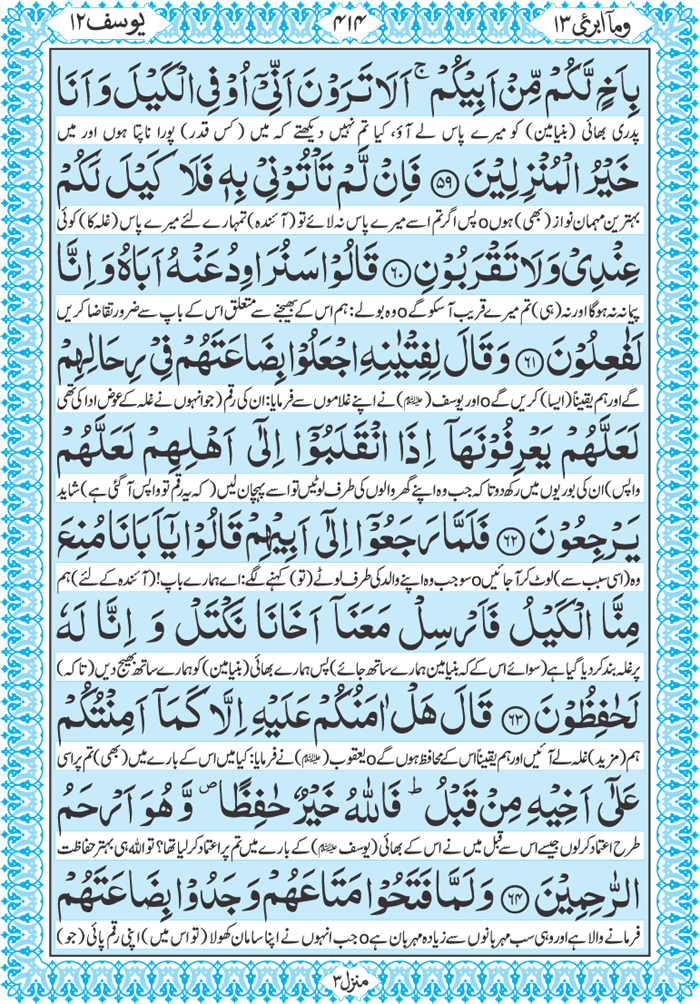 وما ابرئ ١٣
٤١٤
يوسف ١٢
بِاَخٍ لَّكُمْ مِّنْ اَبِيْكُمْ ۚ اَلَا تَرَوْنَ اَنِّيْۤ اُوْفِي الْكَيْلَ وَ اَنَا
پدری بھائی (بنیامین) کو میرے پاس لے آؤ، کیا تم نہیں دیکھتے کہ میں (کس قدر) پورا ناپتا ہوں اور میں
خَيْرُ الْمُنْزِلِيْنَ ﴿۵۹﴾ فَاِنْ لَّمْ تَاْتُوْنِيْ بِهٖ فَلَا كَيْلَ لَكُمْ
بہترین مہمان نواز (بھی) ہوںo پس اگر تم اسے میرے پاس نہ لائے تو (آئندہ) تمہارے لئے میرے پاس (غلہ کا) کوئی
عِنْدِيْ وَلَا تَقْرَبُوْنِ ﴿۶۰﴾ قَالُوْا سَنُرَاوِدُ عَنْهُ اَبَاهُ وَ اِنَّا
پیمانہ نہ ہوگا اور نہ (ہی) تم میرے قریب آسکو گےo وہ بولے: ہم اس کے بھیجنے سے متعلق اس کے باپ سے ضرور تقاضا کریں
لَفٰعِلُوْنَ ﴿۶۱﴾ وَ قَالَ لِفِتْيٰنِهِ اجْعَلُوْا بِضَاعَتَهُمْ فِيْ رِحَالِهِمْ
گے اور ہم یقیناً (ایسا) کریں گےo اور یوسف (علیہ السلام) نے اپنے غلاموں سے فرمایا: ان کی رقم (جو انہوں نے غلہ کے عوض ادا کی تھی
لَعَلَّهُمْ يَعْرِفُوْنَهَاۤ اِذَا انْقَلَبُوْۤا اِلٰۤى اَهْلِهِمْ لَعَلَّهُمْ
واپس) ان کی بوریوں میں رکھ دو تاکہ جب وہ اپنے گھر والوں کی طرف لوٹیں تو اسے پہچان لیں (کہ یہ رقم تو واپس آگئی ہے) شاید
يَرْجِعُوْنَ ﴿۶۲﴾ فَلَمَّا رَجَعُوْۤا اِلٰۤى اَبِيْهِمْ قَالُوْا يٰۤاَبَانَا مُنِعَ
وہ (اسی سبب سے) لوٹ کر آجائیںo سو جب وہ اپنے والد کی طرف لوٹے (تو) کہنے لگے: اے ہمارے باپ! (آئندہ کے لئے) ہم
مِنَّا الْكَيْلُ فَاَرْسِلْ مَعَنَاۤ اَخَانَا نَكْتَلْ وَ اِنَّا لَهٗ
پر غلہ بند کر دیا گیا ہے (سوائے اس کے کہ بنیامین ہمارے ساتھ جائے) پس ہمارے بھائی (بنیامین) کو ہمارے ساتھ بھیج دیں (تاکہ)
لَحٰفِظُوْنَ ﴿۶۳﴾ قَالَ هَلْ اٰمَنُكُمْ عَلَيْهِ اِلَّا كَمَاۤ اَمِنْتُكُمْ
ہم (مزید) غلہ لے آئیں اور ہم یقیناً اس کے محافظ ہوں گےo یعقوب (علیہ السلام) نے فرمایا: کیا میں اس کے بارے میں (بھی) تم پر اسی
عَلٰۤى اَخِيْهِ مِنْ قَبْلُ ؕ فَاللّٰهُ خَيْرٌ حٰفِظًا ۪ وَّ هُوَ اَرْحَمُ
طرح اعتماد کر لوں جیسے اس سے قبل میں نے اس کے بھائی (یوسف علیہ السلام) کے بارے میں تم پر اعتماد کر لیا تھا؟ تو اللہ ہی بہتر حفاظت
الرّٰحِمِيْنَ ﴿۶۴﴾ وَ لَمَّا فَتَحُوْا مَتَاعَهُمْ وَجَدُوْا بِضَاعَتَهُمْ
فرمانے والا ہے اور وہی سب مہربانوں سے زیادہ مہربان ہےo جب انہوں نے اپنا سامان کھولا (تو اس میں) اپنی رقم پائی (جو)
منزل ٣